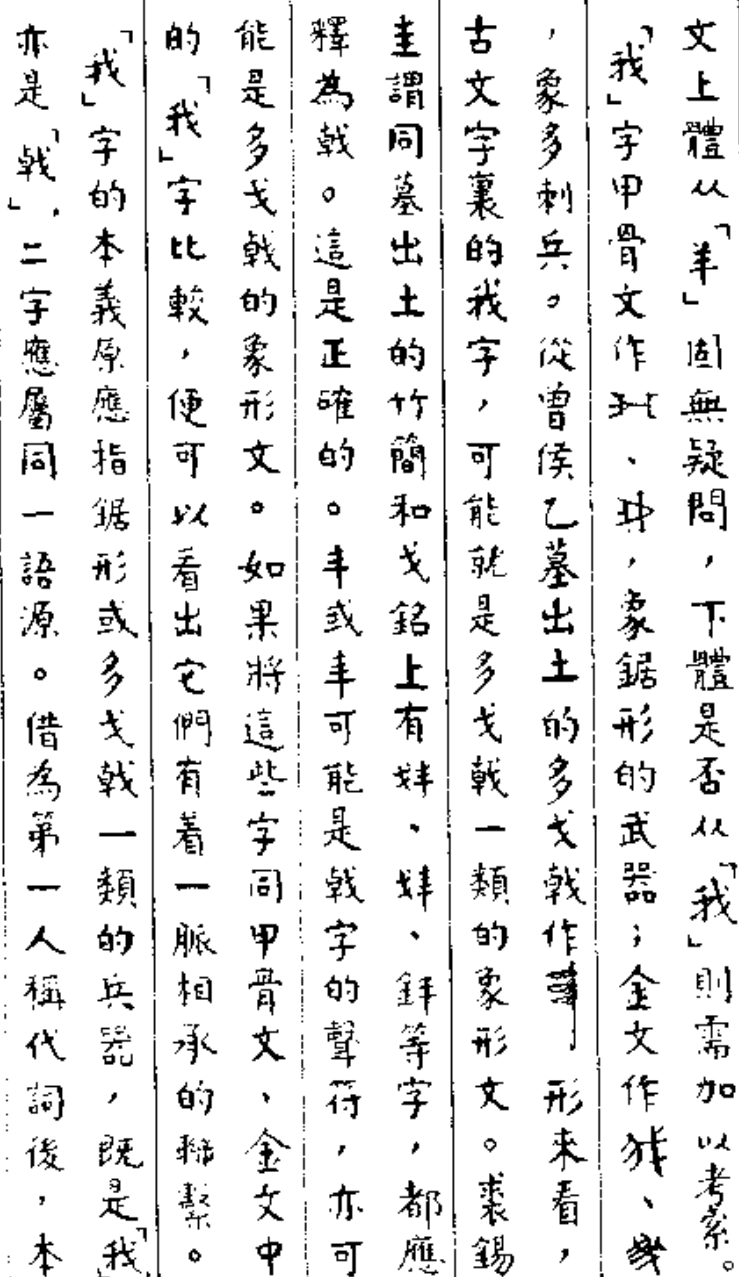 文上體从「羊」固無疑問，下體是否从「我」則需加以考索。
「我」字甲骨文作、，象鋸形的武器；金文作、
，象多刺兵。從曾侯乙墓出土的多戈戟作形來看，
古文字裏的我字，可能就是多戈戟一類的象形文。裘錫
圭謂同墓出土的竹簡和戈銘上有、、等字，都應
釋為戟。這是正確的。丰或丯可能是戟字的聲符，亦可
能是多戈戟的象形文。如果將這些字同甲骨文、金文中
的「我」字比較，便可以看出它們有着一脈相承的聯繫。
「我」字的本義原應指鋸形或多戈戟一類的兵器，既是「我」
亦是「戟」，二字應屬同一語源。借為第一人稱代詞後，本